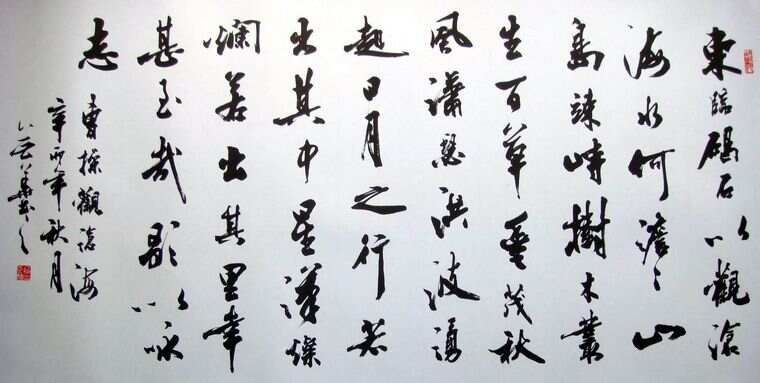 東臨碣石以觀滄
海水何澹〻山
島竦峙樹木叢
生百草豐茂秋
風瀟瑟洪波湧
起日月之行若
出其中星漢燦
爛若出其里幸
甚至哉歌以咏
志
曹操觀滄海
年秋月